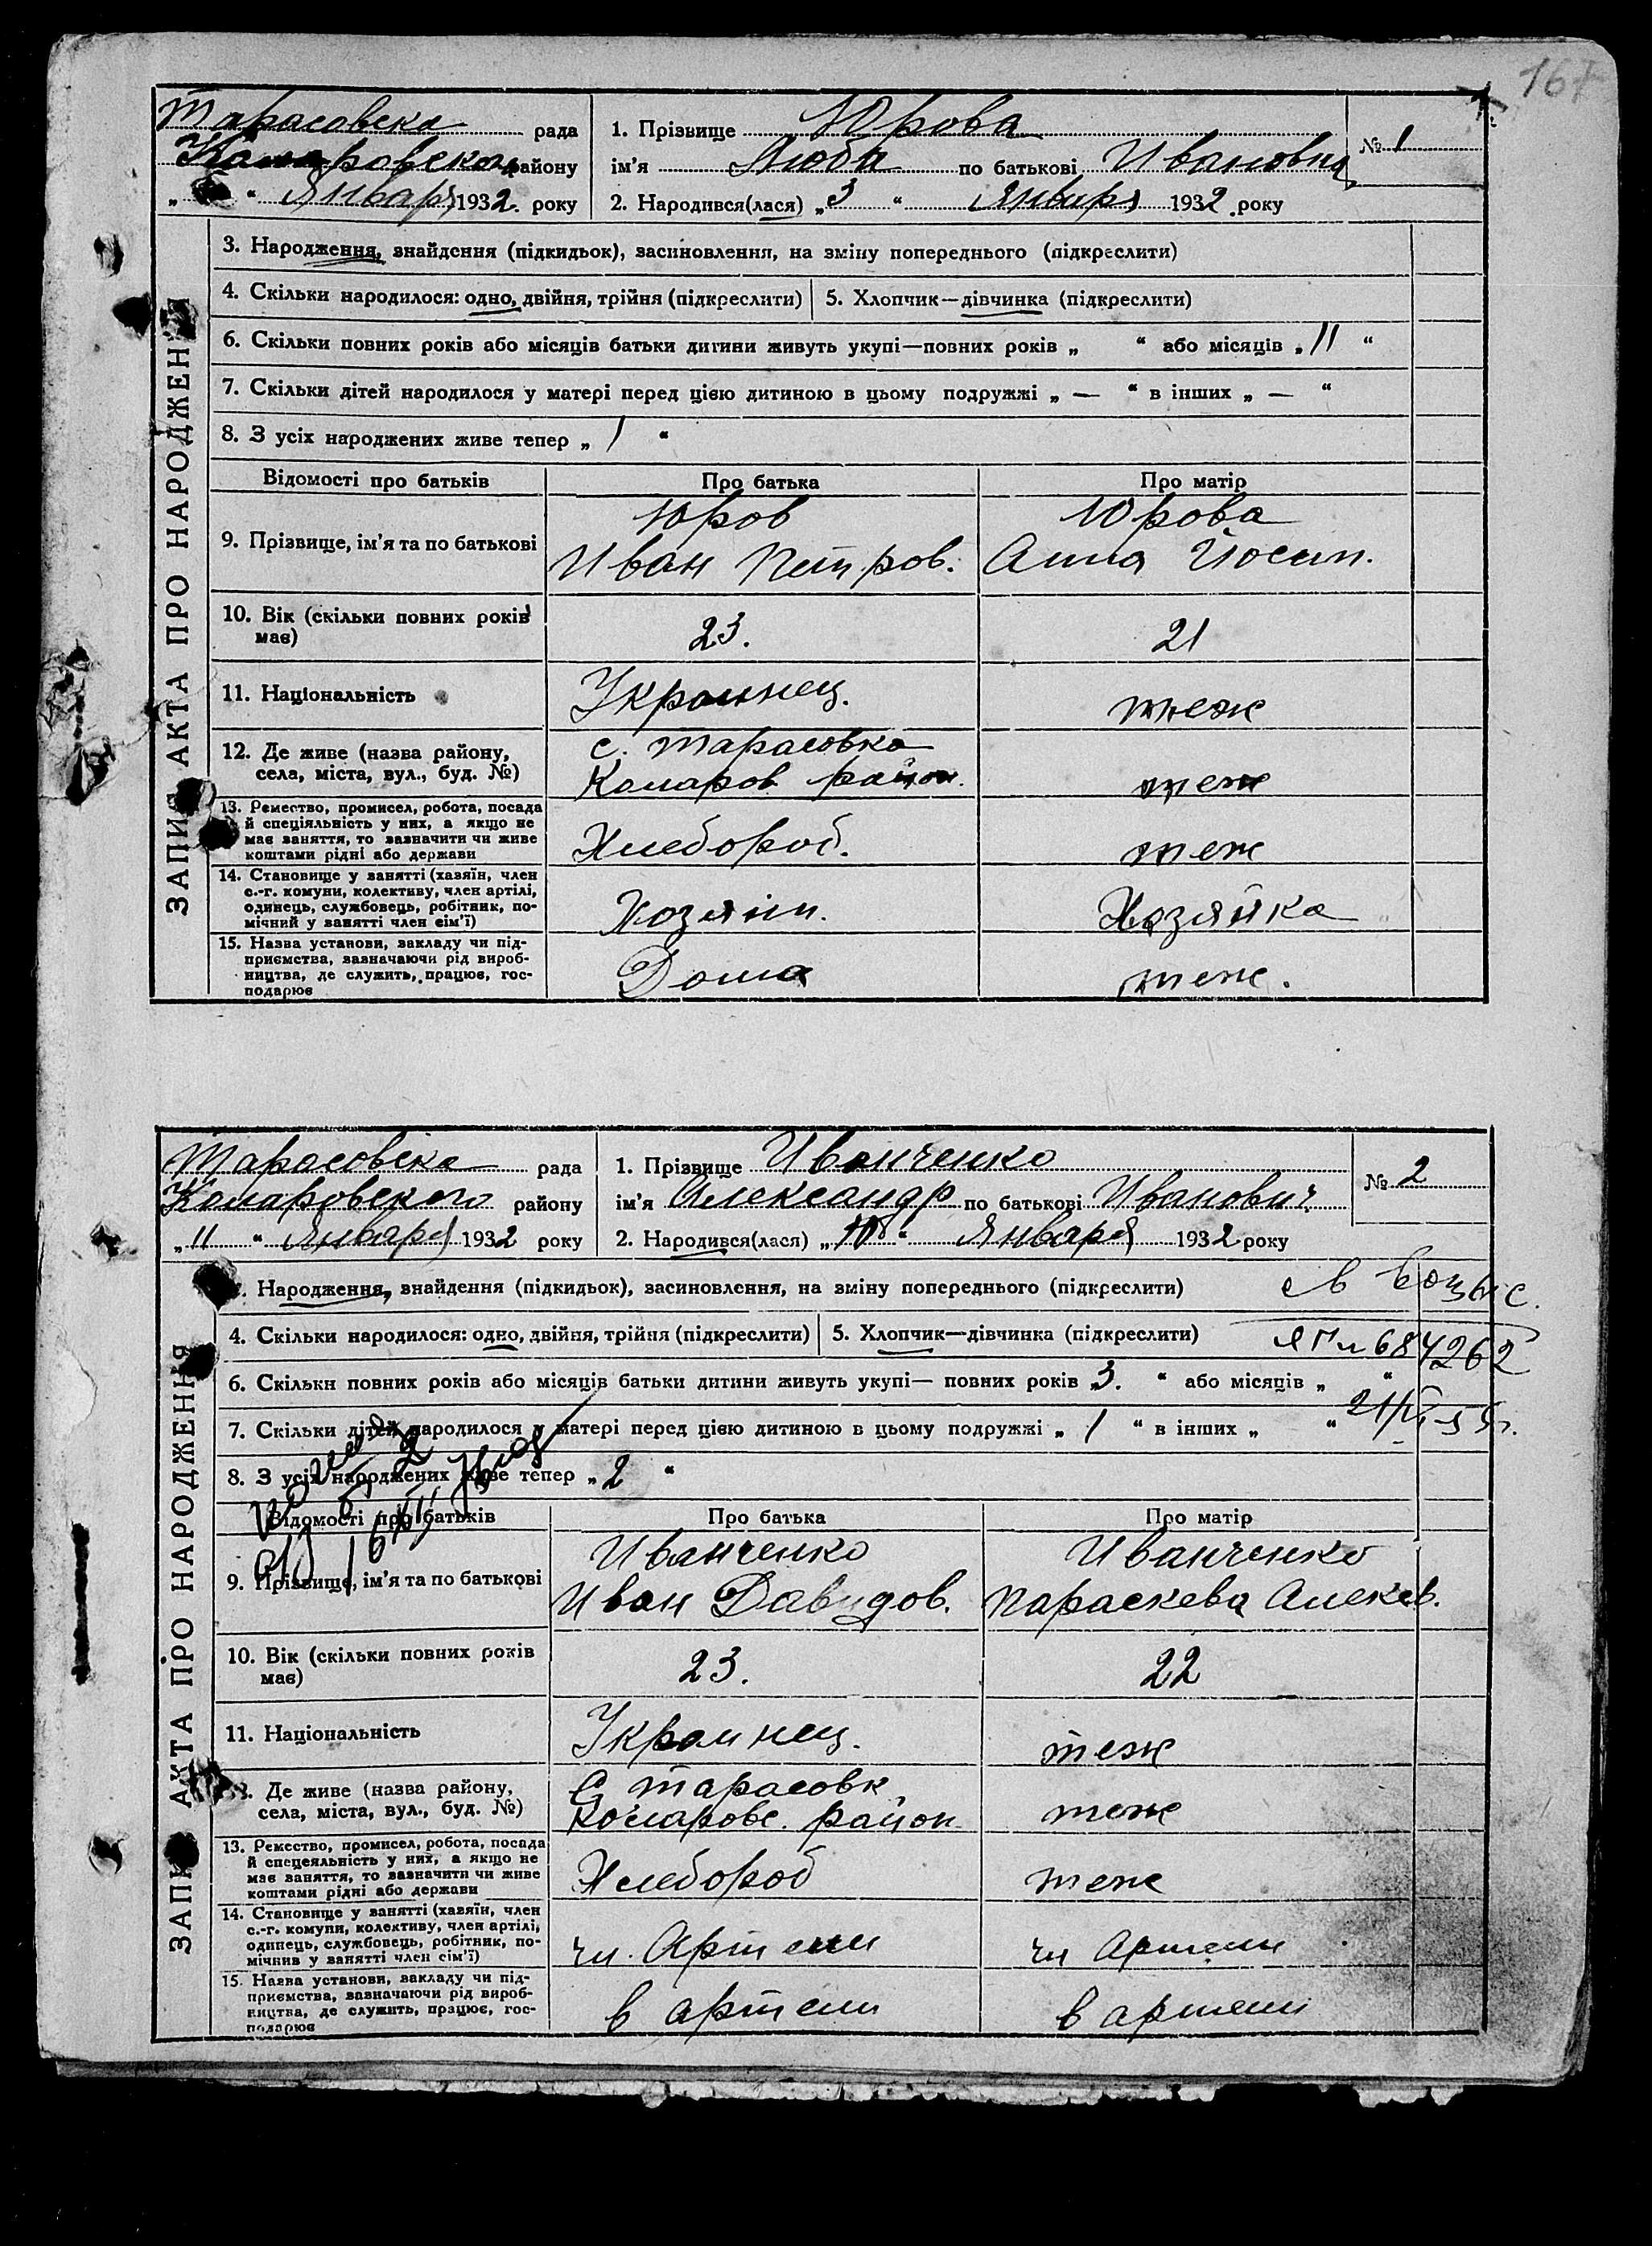 167
Тарасовска рада
Комаровского району
" " Января 1932. року
1. Прізвище Юрова
ім'я Люба по батькові Ивановна
2. Народився(лася) „3 “ Января 1932. року
№ 1
ЗАПИС АКТА ПРО НАРОДЖЕННЯ
3. Народження, знайдення (підкидьок), засиновлення, на зміну попереднього (підкреслити)
4. Скільки народилося: одно, двійня, трійня (підкреслити) 5. Хлопчик—дівчинка (підкреслити)
6. Скільки повних років або місяців батьки дитини живуть укупі—повних років „ “ або місяців „ 11 “
7. Скільки дітей народилося у матері перед цією дитиною в цьому подружжі „ — “ в інших „ — “
8. З усіх народжених живе тепер „ 1 “
Відомості про батьків Про батька Про матір
9. Прізвище, ім'я та по батькові
Юров
Иван Петров.
Юрова
Анна Йосип.
10. Вік (скільки повних років
має)
23.
21
11. Національність
Украинец.
теж
12. Де живе (назва району,
села, міста, вул., буд. №)
с. Тарасовка
Комаров район.
теж
13. Ремество, промисел, робота, посада
й спеціяльність у них, а якщо не
має заняття, то зазначити чи живе
коштами рідні або держави
Хлебороб.
теж
14. Становище у занятті (хазяїн, член
с.-г. комуни, колективу, член артілі,
одинець, службовець, робітник, по-
мічний у занятті член сім'ї)
Хозяін.
Хозяйка
15. Назва установи, закладу чи під-
приємства, зазначаючи рід вироб-
ництва, де служить, працює, гос-
подарює
Дома
теж.
Тарасовска рада
Комаровского району
„ 11 “ Января 1932 року
1. Прізвище Иванченко
ім'я Александр по батькові Иванович
2. Народився(лася) „ 10 “ Января 1932 року
№ 2
ЗАПИС АКТА ПРО НАРОДЖЕННЯ
Народження, знайдення (підкидьок), засиновлення, на зміну попереднього (підкреслити)
4. Скільки народилося: одно, двійня, трійня (підкреслити) 5. Хлопчик—дівчинка (підкреслити)
684262
6. Скільки повних років або місяців батьки дитини живуть укупі— повних років „3. “ або місяців „ “
7. Скільки дітей народилося у матері перед цією дитиною в цьому подружжі „ 1 “ в інших „ “
8. З усіх народжених живе тепер „ 2 “
Відомості про батьків Про батька Про матір
9. Прізвище, ім'я та по батькові
Иванченко
Иван Давидов.
Иванченко
Параскева Алексев.
10. Вік (скільки повних років
має)
23.
22
11. Національність
Украинец.
теж
Де живе (назва району,
села, міста, вул., буд. №)
С Тарасовк
Комаровс. район
теж
13. Ремество, промисел, робота, посада
й спецеяльність у них, а якщо не
має заняття, то зазначити чи живе
коштами рідні або держави
Хлебороб
теж
14. Становище у занятті (хазяїн, член
с.-г. комуни, колективу, член артілі,
одинець, службовець, робітник, по-
мічник у занятті член сім'ї)
чл. Артели
чл Артели
15. Назва установи, закладу чи під-
приємства, зазначаючи рід вироб-
ництва, де служить, працює, гос-
подарює
в артели
в артели